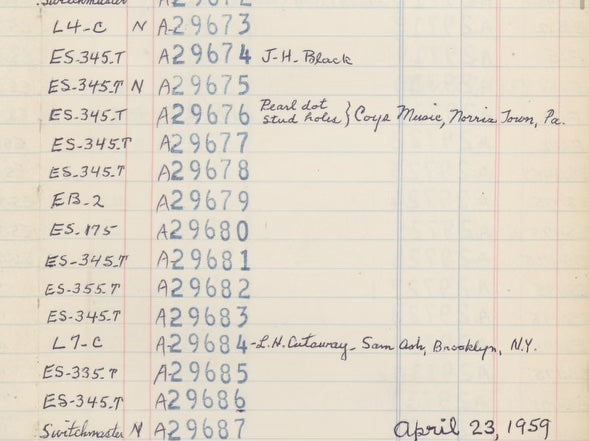 Switchmaster A29672
L4-C N A29673
ES-345-T A29674 J-H. Black
ES-345-T N A29675
ES-345-T A29676 Pearl dot stud holes } Coys Music, Norris Town, Pa.
ES-345-T A29677
ES-345-T A29678
EB-2 A29679
ES-175 A29680
ES-345-T A29681
ES-355-T A29682
ES-345-T A29683
L7-C A29684-L.H. Cutaway- Sam Ash, Brooklyn, N.Y.
ES-335-T A29685
ES-345-T A29686
Switchmaster N A29687 April 23, 1959